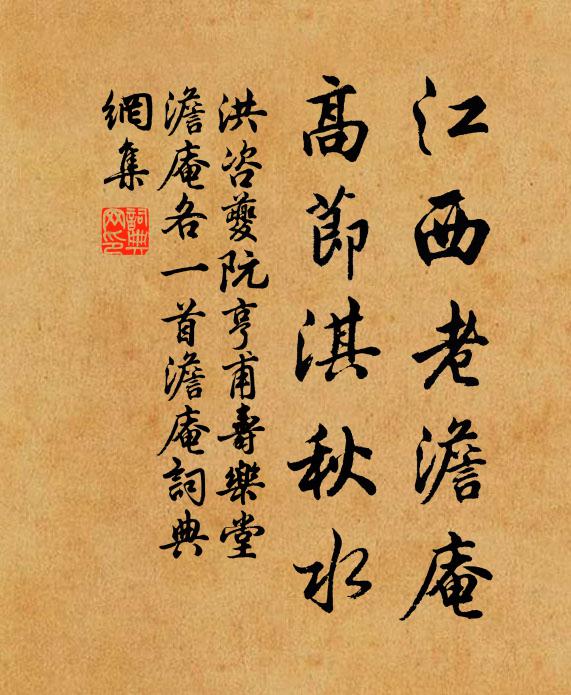 江西老澹庵
高節淇秋水
洪咨夔阮亨甫壽樂堂
澹庵各一首澹庵詞典
網集
詞典
網印